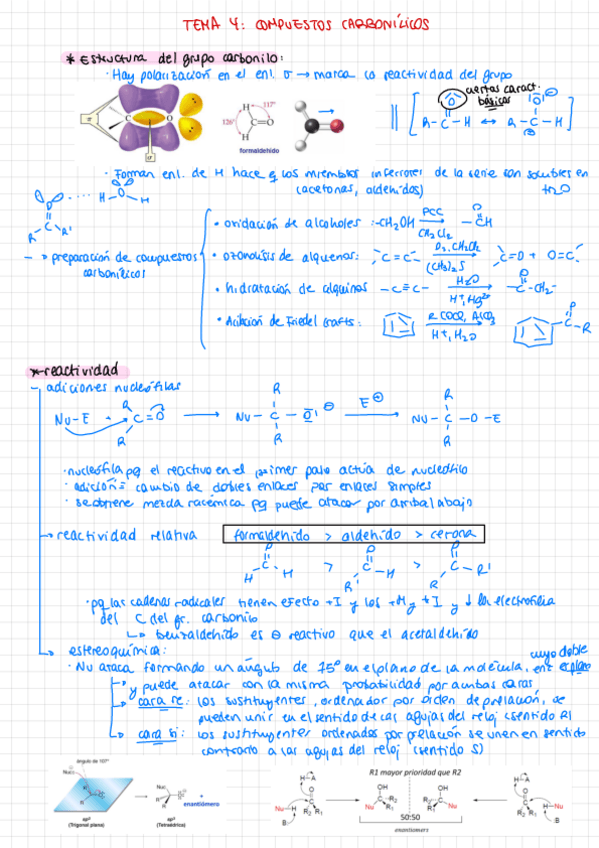 TEMA 4: COMPUESTOS CARBONÍLICOS
* Estructura del grupo carbonilo:
· Hay polarización en el enl. σ → marca la reactividad del grupo
ciertas caract. básicas
126°
117°
formaldehido
R-C-H ↔ R-C-H
· Forman enl. de H hace q los miembros inferiores de la serie son solubles en H2O
(acetonas, aldehidos)
- preparación de compuestos carbonílicos
· oxidación de alcoholes: -CH2OH PCC CH2Cl2 -CH O
· ozonólisis de alquenos: C=C O3, CH2Cl2 (CH3)2S C=O + O=C
· hidratación de alquinos -C≡C- H2O H+, Hg2+ -C-CH2- O
· Acilación de Friedel Crafts: RCOCl, AlCl3 H+, H2O C-R O
* reactividad
- adiciones nucleófilas
Nu-E + R C=O R → Nu-C-O ⊖ R R E⊕ → Nu-C-O-E R R
· nucleófila pq el reactivo en el primer paso actúa de nucleófilo
· adición = cambio de dobles enlaces por enlaces simples
· se obtiene mezcla racémica pq puede atacar por arriba/abajo
→ reactividad relativa
formaldehido > aldehido > cetona
H C H O > R' C-H O > R' C-R' O
· pq las cadenas radicales tienen efecto +I y los +M y +I y ↓ la electrofilia
del C del gr. carbonilo
↳ benzaldehido es ⊖ reactivo que el acetaldehido
→ estereoquímica:
· Nu ataca formando un ángulo de 75° en el plano de la molécula,
y puede atacar con la misma probabilidad por ambas caras
→ cara re: los sustituyentes, ordenador por orden de prelación, se
pueden unir en el sentido de las agujas del reloj (sentido R)
→ cara si: los sustituyentes ordenados por prelación se unen en sentido
contrario a las agujas del reloj (sentido S)
ángulo de 107°
Nuc:
sp2
(Trigonal plana)
sp3
(Tetraédrica)
+ enantiómero
R1 mayor prioridad que R2
H-A
Nu-H
B
R2 R1
OH
Nu
50:50
enantiomers
OH
Nu
H-A
H-Nu
B